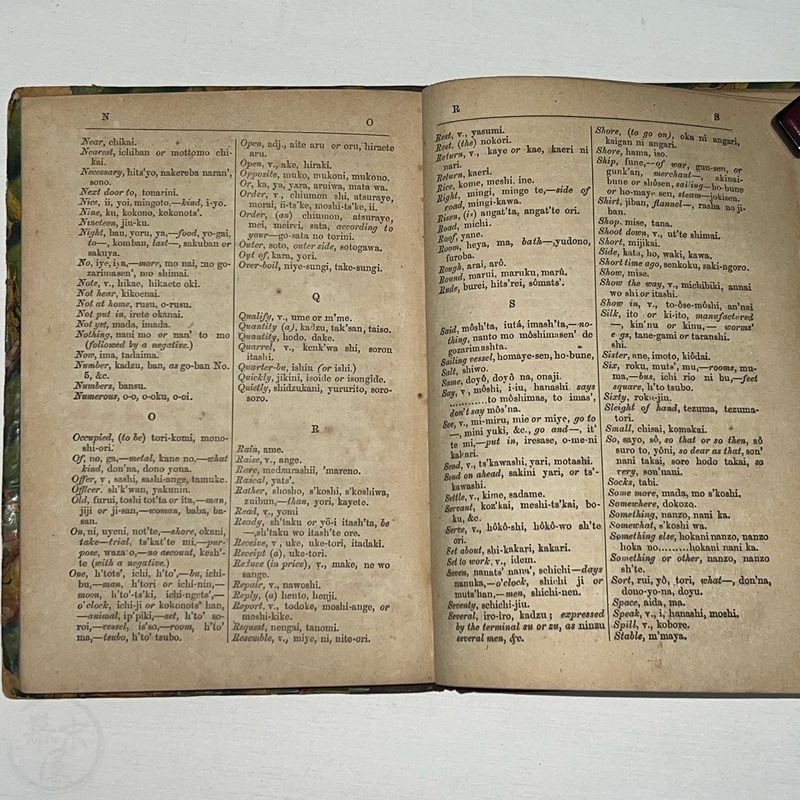 N
O
Near, chikai.
Nearest, ichiban or mottomo chi-
kai.
Necessary, hits'yo, nakereba naran',
sono.
Next door to, tonarini.
Nice, ii, yoi, mingoto,—kind, i-yo.
Nine, ku, kokono, kokonots'.
Nineteen, jin-ku.
Night, ban, yoru, ya,—food, yo-gai,
to—, komban, last—, sakuban or
sakuya.
No, iye, iya,—more, mo nai, mo go-
zarimasen', mo shimai.
Note, v., hikae, hikaeto oki.
Not hear, kikoenai.
Not at home, rusu, o-rusu.
Not put in, irete okanai.
Not yet, mada, imada.
Nothing, nani mo or nan' to mo
(followed by a negative.)
Now, ima, tadaima.
Number, kadzu, ban, as go-ban No.
5, &c.
Numbers, bansu.
Numerous, o-o, o-oku, o-oi.
O
Occupied, (to be) tori-komi, mono-
shi-ori.
Of, no, ga,—metal, kane no,—what
kind, don'na, dono yona.
Offer, v., sashi, sashi-ange, tamuke.
Officer, sh'kwan, yakunin.
Old, furui, toshi tot'ta or ita,—man,
jiji or ji-san,—woman, baba, ba-
san.
On, ni, uyeni, not'te,—shore, okani,
take—trial, ts'kat'te mi,—pur-
pose, waza o,—no account, kesh'-
te (with a negative.)
One, h'tots', ichi, h'to',—bu, ichi-
bu,—man, h'tori or ichi-nin,—
moon, h'to'-ts'ki, ichi-ngets',—
o'clock, ichi-ji or kokonots' han,
—animal, ip'piki,—set, h'to' so-
roi,—vessel, is'so,—room, h'to'
ma,—tsubo, h'to' tsubo.
Open, adj., aite aru or oru, hiraete
aru.
Open, v., ake, hiraki.
Opposite, muko, mukoni, mukono.
Or, ka, ya, yara, aruiwa, mata wa.
Order, v., chiumon shi, atsuraye,
morai, ii-ts'ke, moshi-ts'ke, ii.
Order, (an) chiumon, atsuraye,
mei, meirei, sata, according to
your—go-sata no torini.
Outer, soto, outer side, sotogawa.
Out of, kara, yori.
Over-boil, niye-sungi, take-sungi.
Q
Qualify, v., ume or m'me.
Quantity (a), kadzu, tak'san, taiso.
Quantity, hodo, dake.
Quarrel, v., kenk'wa shi, soron
itashi.
Quarter-bu, ishiu (or ishi.)
Quickly, jikini, isoide or isongide.
Quietly, shidzukani, yururito, soro-
soro.
R
Rain, ame.
Raise, v., ange.
Rare, medzurashii, 'mareno.
Rascal, yats'.
Rather, shosho, s'koshi, s'koshiwa,
zuibun,—than, yori, kayete.
Read, v., yomi
Ready, sh'taku or yō-i itash'ta, be
—,sh'taku wo itash'te ore.
Receive, v., uke, uke-tori, itadaki.
Receipt (a), uke-tori.
Reduce (in price), v., make, ne wo
sange.
Repair, v., nawoshi.
Reply, (a) hento, henji.
Report, v., todoke, moshi-ange, or
moshi-kike.
Request, nengai, tanomi.
Resemble, v., miye, ni, nite-ori.
R
S
Rest, v., yasumi.
Rest, (the) nokori.
Return, v., kaye or kae, kaeri ni
nari.
Return, kaeri.
Rice, kome, meshi, ine.
Right, mingi, minge te,—side of
road, mingi-kawa.
Risen, (is) angat'ta, angat'te ori.
Road, michi.
Roof, yane.
Room, heya, ma, bath—,yudono,
furoba.
Rough, arai, arô.
Round, marui, maruku, marû.
Rude, burei, hits'rei, sômats'.
S
Said, môsh'ta, iutá, imash'ta,—no-
thing, nanto mo môshimasen' de
gozarimashta.
Sailing vessel, homaye-sen, ho-bune,
Salt, shiwo.
Same, doyô, doyô na, onaji.
Say, v., môshi, i-iu, hanashi says
............to môshimas, to imas',
don't say môs'na.
See, v., mi-miru, mie or miye, go to
—, mini yuki, &c., go and—, it'
te mi,—put in, iresase, o-me-ni
kakari.
Send, v., ts'kawashi, yari, motashi.
Send on ahead, sakini yari, or ts'-
kawashi.
Settle, v., kime, sadame.
Servant, koz'kai, meshi-ts'kai, bo-
ku, &c.
Serve, v., hôkô-shi, hôkô-wo sh'te
ori.
Set about, shi-kakari, kakari.
Set to work, v., idem.
Seven, nanats' nana', shichi—days
nanuka,—o'clock, shichi ji or
muts'han,—men, shichi-nen.
Seventy, schichi-jiu.
Several, iro-iro, kadzu; expressed
by the terminal su or zu, as ninzu
several men, &c.
Shore, (to go on), oka ni angari,
kaigan ni angari.
Shore, hama, iso.
Ship, fune,—of war, gun-sen, or
gunk'an, merchant—, akinai-
bune or shôsen, sailing—ho-bune
or ho-maye- sen, steam—jokisen.
Shirt, jiban, flannel—, rasha no ji-
ban.
Shop, mise, tana.
Shoot down, v., ut'te shimai.
Short, mijikai.
Side, kata, ho, waki, kawa.
Short time ago, senkoku, saki-ngoro.
Show, mise.
Show the way, v., michibiki, annai
wo shi or itashi.
Show in, v., to-ôse-môshi, an'nai
Silk, ito or ki-ito, manufactured
—, kin'nu or kinu,— worms'
eggs, tane-gami or taranshi.
shi.
Sister, ane, imoto, kiôdai.
Six, roku, muts', mu,—rooms, mu-
ma,—bus, ichi rio ni bu,—feet
square, h'to tsubo.
Sixty, roku-jiu.
Sleight of hand, tezuma, tezuma-
tori.
Small, chisai, komakai.
So, sayo, sô, so that or so then, sô
suro to, yôni, so dear as that, son'
nani takai, sore hodo takai, so
very, son'nani.
Socks, tabi.
Some more, mada, mo s'koshi.
Somewhere, dokozo.
Something, nanzo, nani ka.
Somewhat, s'koshi wa.
Something else, hokani nanzo, nanzo
hoka no.........hokani nani ka.
Something or other, nanzo, nanzo
sh'te.
Sort, rui, yô, tori, what—, don'na,
dono-yo-na, doyu.
Space, aida, ma.
Speak, v., i, hanashi, moshi.
Spill, v., kobore.
Stable, m'maya.